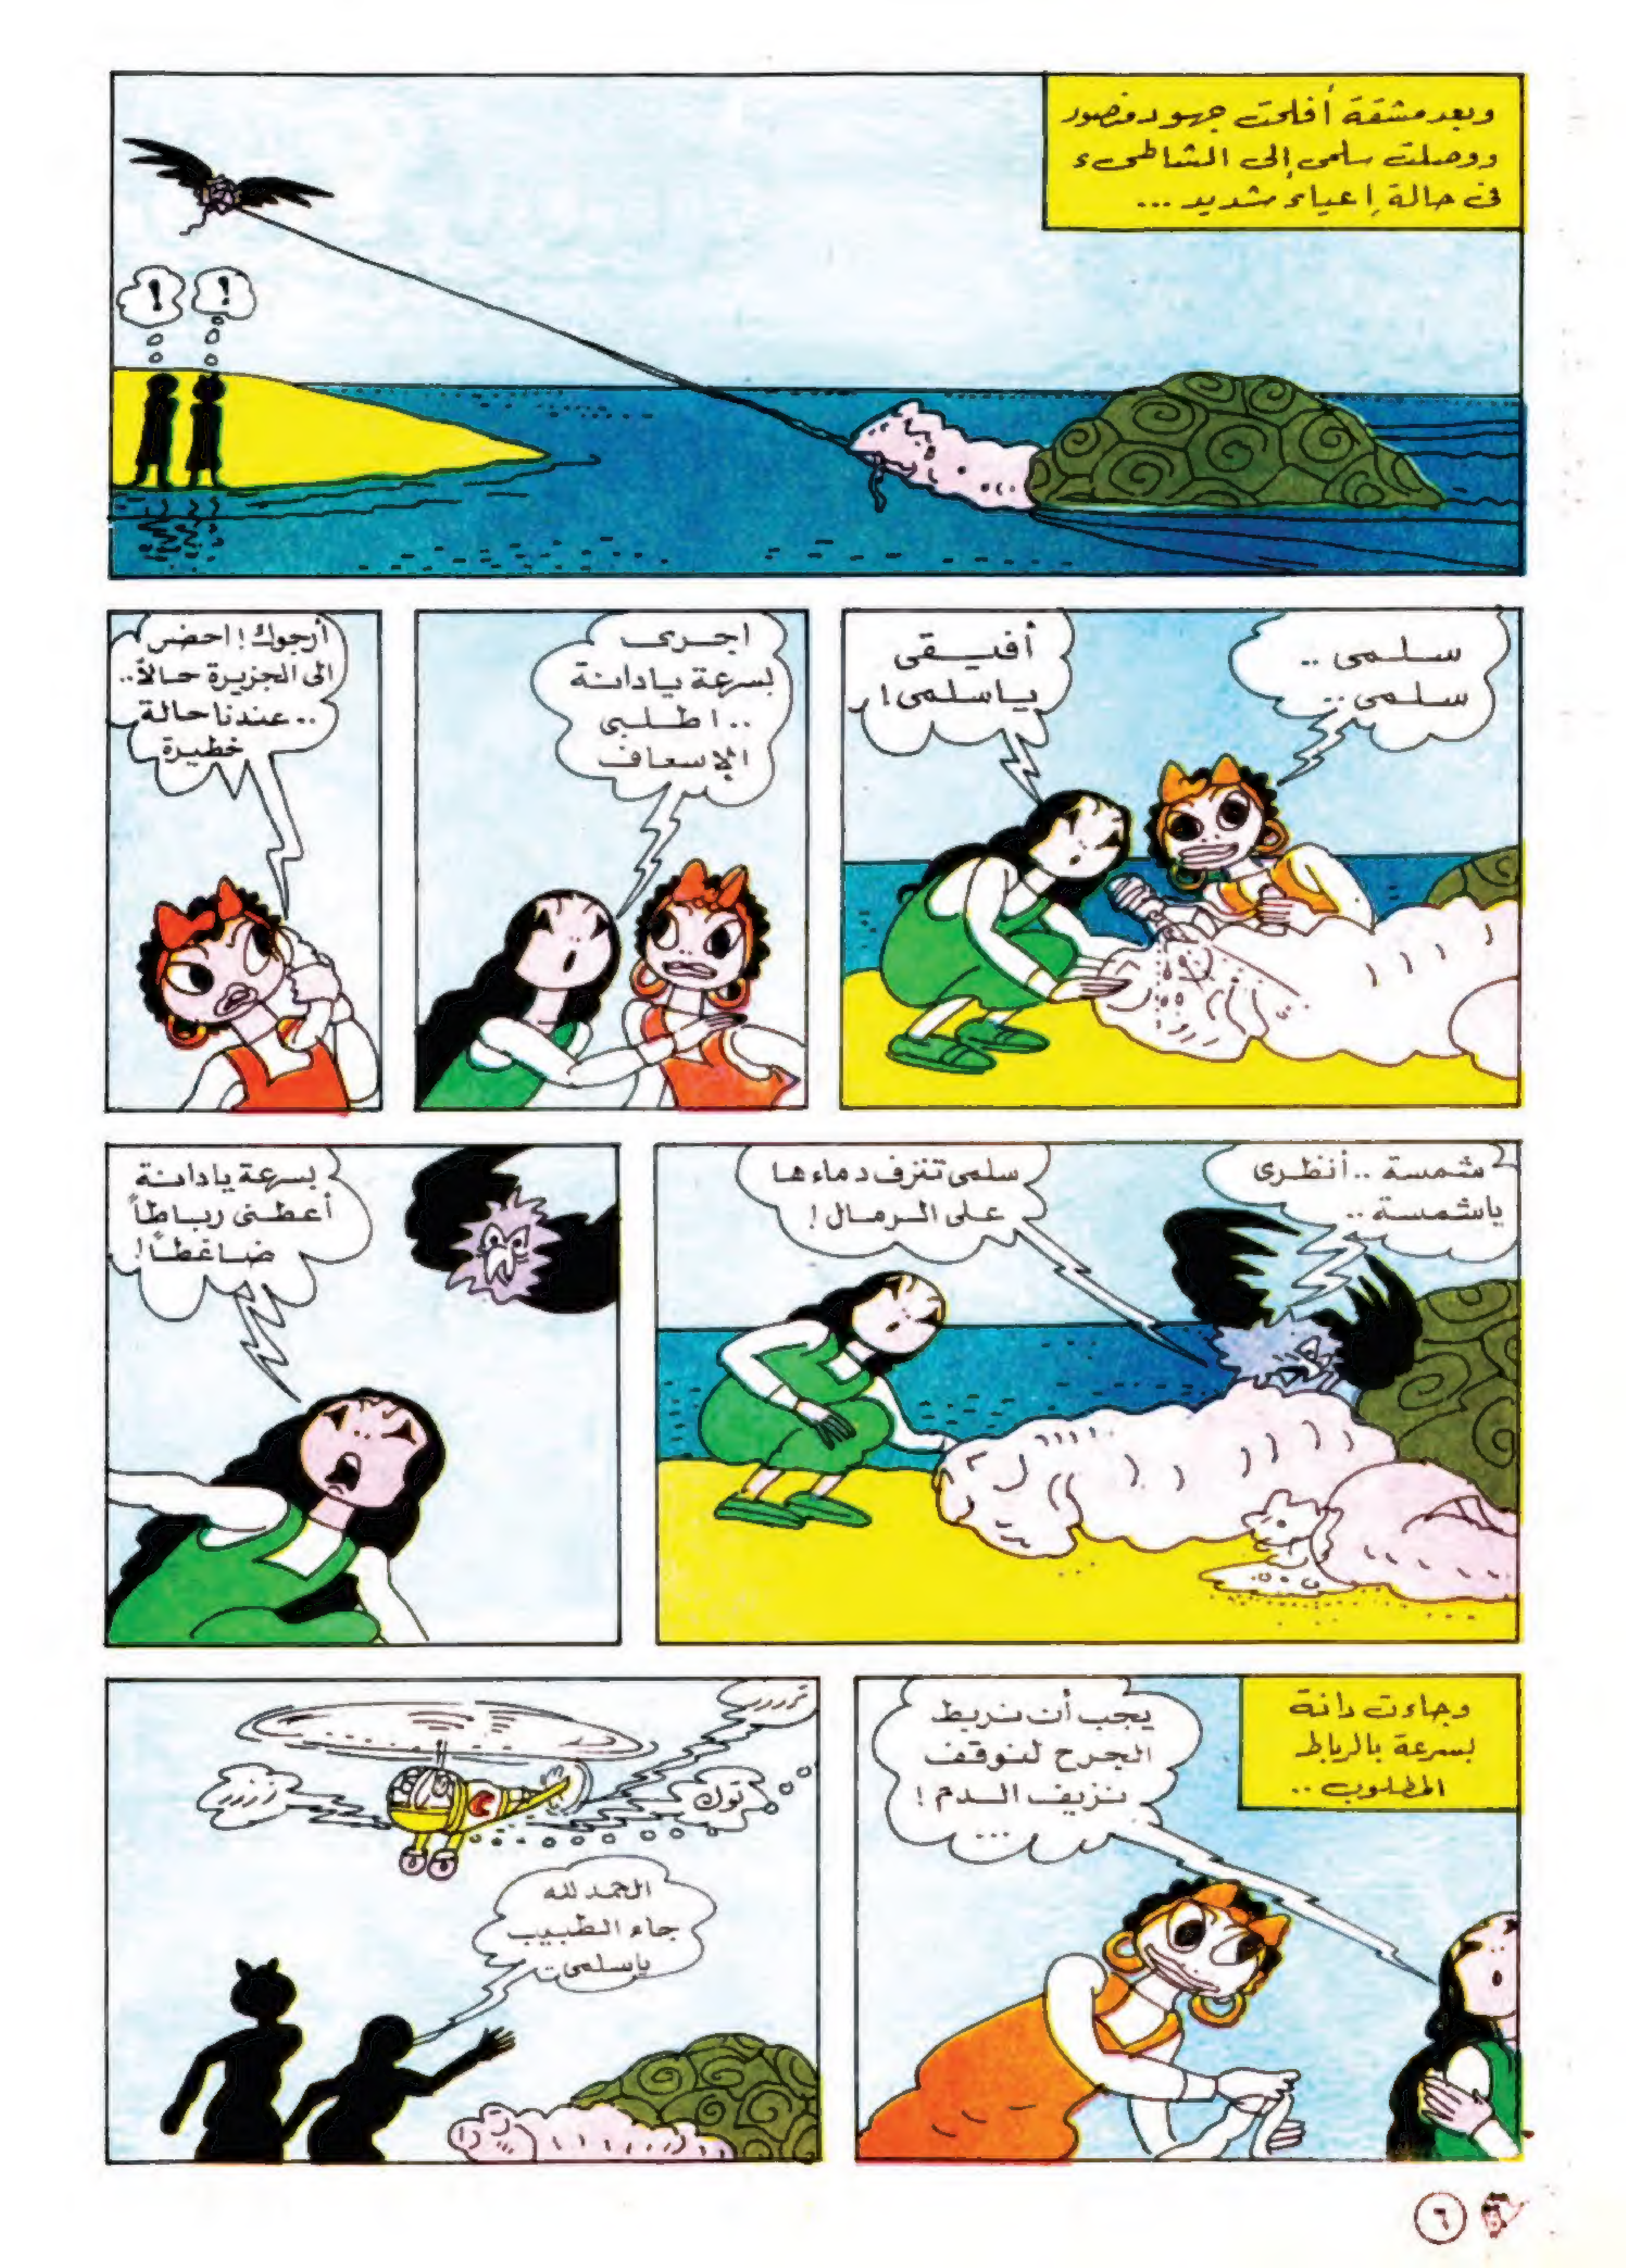 وبعد مشقة أفلحت جهود منصور
ووصلت سلمى إلى الشاطىء
فى حالة إعياء شديد ...
!
!
سلمى ..
سلمى ..
أفيقى
ياسلمى !
اجرى
بسرعة يادانة
.. اطلبى
الإسعاف
أرجوك ! احضر
الى الجزيرة حالاً ..
.. عندنا حالة
خطيرة
شمسة .. أنظرى
ياشمسة ..
سلمى تنزف دماءها
على الرمال !
بسرعة يادانة
أعطنى رباطاً
ضاغطاً !
وجاءت دانة
بسرعة بالرباط
المطلوب ..
يجب أن نربط
الجرح لنوقف
نزيف الدم !
...
تررر
توك
زررر
الحمد لله
جاء الطبيب
ياسلمى ..
٦